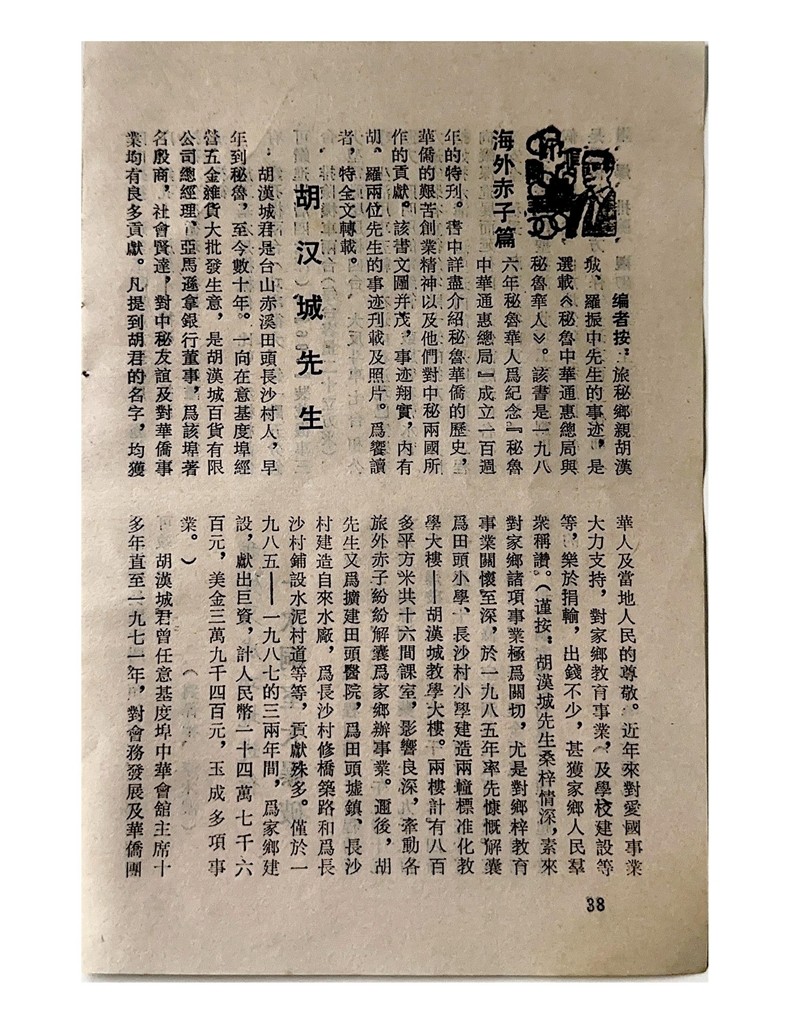 海外赤子篇
编者按：旅秘鄉親胡漢
城、羅振中先生的事迹，是
選載《秘魯中華通惠總局與
秘魯華人》。該書是一九八
六年秘魯華人爲紀念『秘魯
中華通惠總局』成立一百週
年的特刊。書中詳盡介紹秘魯華僑的歷史，
華僑的艱苦創業精神以及他們對中秘兩國所
作的貢獻。該書文圖并茂，事迹翔實，内有
胡、羅兩位先生的事迹刊載及照片。爲饗讀
者，特全文轉載。
胡汉城先生
胡漢城君是台山赤溪田頭長沙村人，早
年到秘魯，至今數十年。一向在意基度埠經
營五金雜貨大批發生意，是胡漢城百貨有限
公司總經理，亞馬遜拿銀行董事，爲該埠著
名殷商，社會賢達，對中秘友誼及對華僑事
業均有良多貢獻。凡提到胡君的名字，均獲
華人及當地人民的尊敬。近年來對愛國事業
大力支持，對家鄉教育事業，及學校建設等
等，樂於捐輸，出錢不少，甚獲家鄉人民羣
衆稱讚。（谨按：胡漢城先生桑梓情深，素來
對家鄉諸項事業極爲關切，尤是對鄉梓教育
事業關懷至深，於一九八五年率先慷慨解囊
爲田頭小學、長沙村小學建造兩幢標准化教
學大樓——胡漢城教學大樓。兩樓計有八百
多平方米共十六間課室，影響良深，牽動各
旅外赤子紛紛解囊爲家鄉辦事業。邇後，胡
先生又爲擴建田頭醫院，爲田頭墟鎮、長沙
村建造自來水廠，爲長沙村修橋築路和爲長
沙村鋪設水泥村道等等，貢獻殊多。僅於一
九八五——一九八七的三兩年間，爲家鄉建
設，獻出巨資，計人民幣一十四萬七千六
百元，美金三萬九千四百元，玉成多項事
業。）
胡漢城君曾任意基度埠中華會舘主席十
多年直至一九七一年，對會務發展及華僑團
38